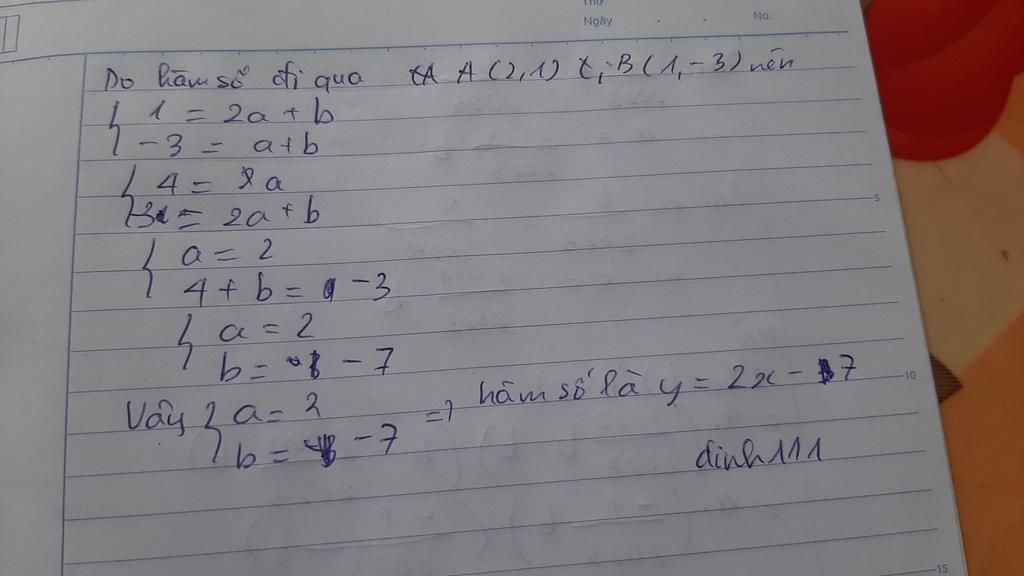 Thứ
Ngày . . No.
Do hàm số đi qua A (2,1) B (1,-3) nên
1 = 2a + b
-3 = a+b
4 = 2a
-3 = 2a+b
5
a = 2
4 + b = -3
a = 2
b = -7
10
Vậy a = 2
b = -7
=> hàm số là y = 2x - 7
dinh111
15